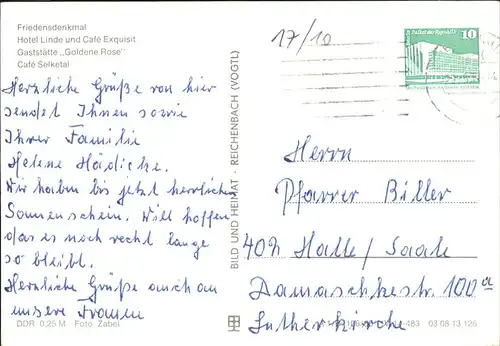 Friedensdenkmal
Hotel Linde und Café Exquisit
Gaststätte „Goldene Rose"
Café Selketal
Herzliche Grüße von hier
sendet Ihnen sowie
Ihrer Familie
Helene Hädicke.
Wir haben bis jetzt herrlichen
Sonnenschein. Will hoffen
das es noch recht lange
so bleibt.
Herzliche Grüße auch an
unsere Frauen
DDR 0,25 M Foto Zabel
BILD UND HEIMAT · REICHENBACH (VOGTL)
17/10
10
Herrn
Pfarrer Biller
402 Halle/Saale
Damaschkestr. 100a
Lutherkirche
483 03 08 13 125